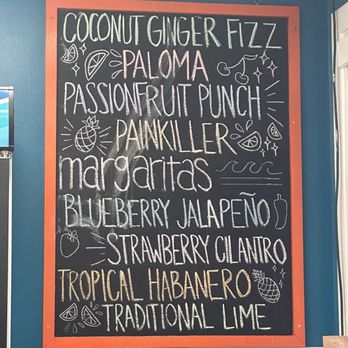 COCONUT GINGER FIZZ
PALOMA
PASSIONFRUIT PUNCH
PAINKILLER
margaritas
BLUEBERRY JALAPEÑO
STRAWBERRY CILANTRO
TROPICAL HABANERO
TRADITIONAL LIME